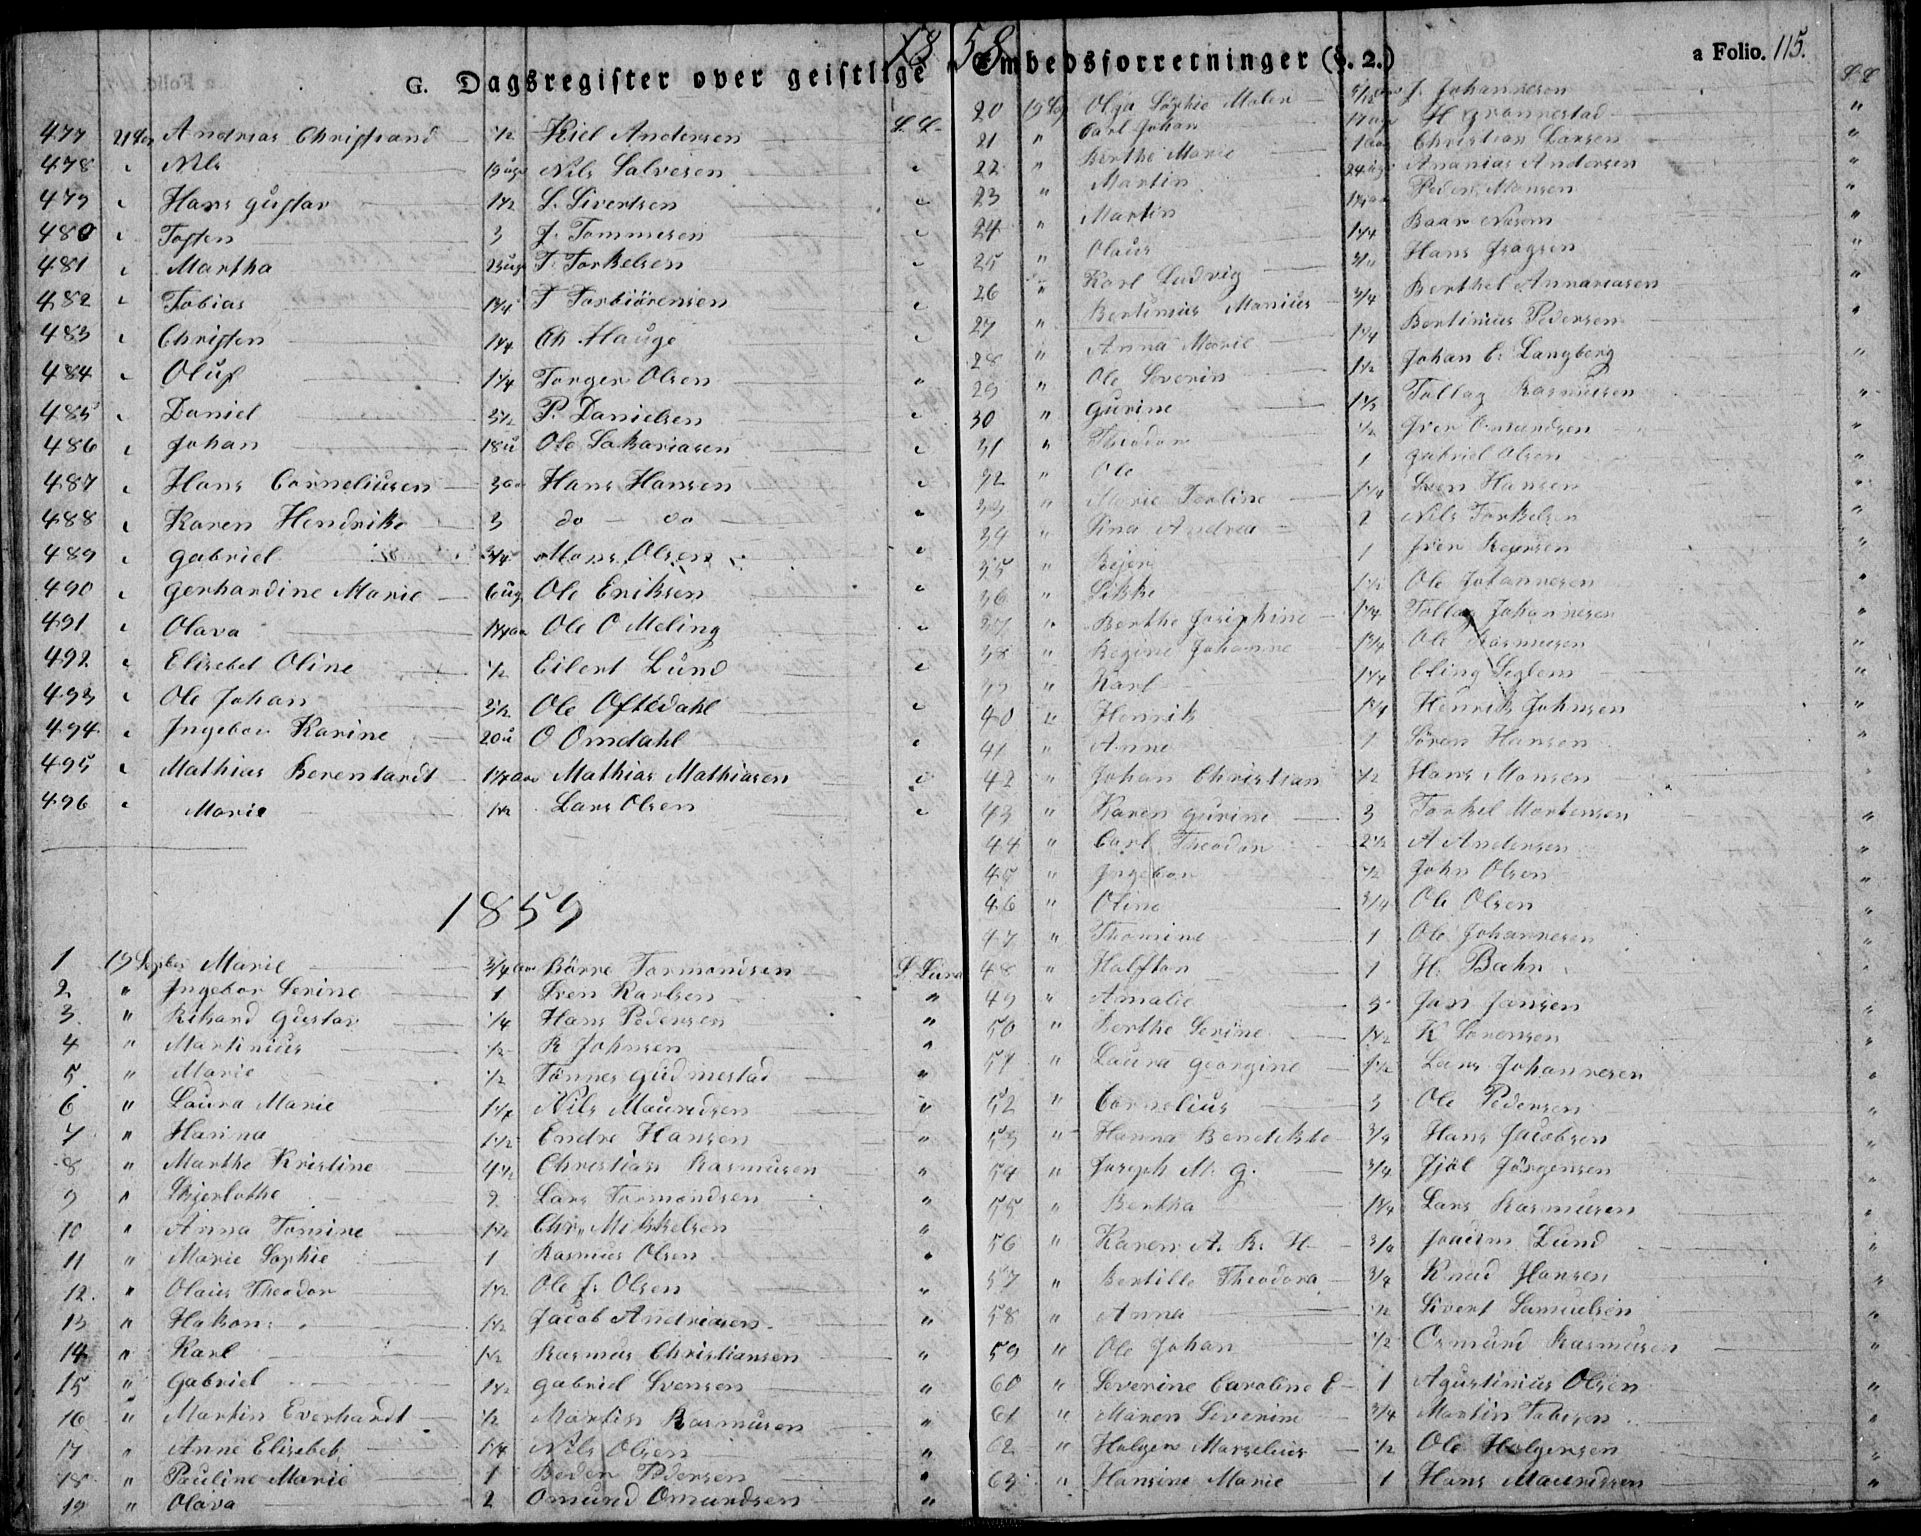 1858
G. Dagsregister over geistlige Embedsforretninger (§. 2.)
a Folio. 115.
477 Andreas Christiand 1/2 Kiel Andersen L L
478 " Nils 13 ugr Nils Salvesen "
479 " Hans Gustav 1 1/2 L. Sivertsen "
480 " Tosten 3 J. Tommesen "
481 " Martha 23 ugr T. Torkelsen "
482 " Tobias 1 3/4 T Torbiörensen "
483 " Christen 1 1/4 Ch. Hauge "
484 " Oluf 1 1/4 Torger Olsen "
485 " Daniel 3 1/2 P. Danielsen "
486 " Johan 18 u Ole Sakariasen "
487 " Hans Corneliusen 3 aar Hans Hansen "
488 " Karen Hendrike 3 do do "
489 " Gabriel 3/4 Mons Olsen "
490 " Gerhardine Marie 6 ug Ole Eriksen "
491 " Olava 1 1/4 aar Ole O Meling "
492 " Elisebet Oline 1/2 Eilert Lund "
493 " Ole Johan 3 1/2 Ole Oftedahl "
494 " Ingebor Karine 20 u O Omdahl "
495 " Mathias Berentardt 1 1/4 aar Mathias Mathiasen "
496 " Marie 1 1/2 Lars Olsen "
1859
1 19 Septbr Marie 3/4 aar Börre Tormondsen L Lura
2 " Ingebor Serine 1 Sven Karlsen "
3 " Rikard Gustav 1/4 Hans Pedersen "
4 " Martinius 1/2 R Johnsen "
5 " Marie 1/2 Tönnes Gudmestad "
6 " Laura Marie 1 1/4 Nils Mauridsen "
7 " Hanna 1 1/2 Endre Hansen "
8 " Marthe Kristine 4 1/2 Christian Rasmusen "
9 " 2 Lars Tormondsen "
10 " Anna Tomine 1 1/2 Chr. Mikkelsen "
11 " Marie Sophie 1 Rasmus Olsen "
12 " Olaus Theodor 1 1/2 Ole J. Olsen "
13 " Hakon 1 1/2 Jacob Andreasen "
14 " Karl 1 1/2 Rasmus Christiansen "
15 " Gabriel 1 1/2 Gabriel Svensen "
16 " Martin Everhardt 1/2 Martin Rasmusen "
17 " Anne Elisebet 1 1/4 Nils Olsen "
18 " Pauline Marie 1 Peder Pedersen "
19 " Olava 2 Omund Omundsen "
20 19 Olga Sophie Malen J. Johannesen
21 " Carl Johan H Grönnestad "
22 " Berthe Marie 1 aar Christian Larsen "
23 " Martin 24 ugr Ananias Andersen "
24 " Martin Peder Monsen "
25 " Olaus 1 1/4 "
26 " Karl Ludvig Hans "
27 " Bertinius Monius 3/4 Berthel Annaniasen "
28 " Anna Marie 1 1/4 Bertinius Pedersen "
29 " Ole Severin 1 1/2 Johan E. Langberg "
30 " Gurine Tollag Rasmusen "
31 " Theodor 1/2 Iver Omundsen "
32 " Ole 1 Gabriel Olsen "
33 " Marie Torline 1 1/4 Sven Hansen "
34 " Sina Andrea 2 Nils Torkelsen "
35 " 1 Iver "
36 " Ole Johannesen "
37 " Berthe Josephine 1 1/4 Tollag Johannesen "
38 " Regine Johanne 1 3/4 Ole Rasmusen "
39 " Karl 1 1/4 Eling Seglem "
40 " Henrik 1 3/4 Henrik Johnsen "
41 " Anne 1 Sören Hansen "
42 " Johan Christian 1/2 Hans Monsen "
43 " Karen Gurine 3 Torkel Mortensen "
44 " Carl Theodor 2 1/2 A Andersen "
45 " Ingebor 1/2 John Olsen "
46 " Oline 3/4 Ole Olsen "
47 " Thomine 1 Ole Johannesen "
48 " Halftan 1 H. Bahn "
49 " Amalie 3 Jan Jansen "
50 " Berthe Serine 1 1/2 K Sörensen "
51 " Laura Georgine 1 1/2 Lars Johannesen "
52 " Cornelius 3 Ole Pedersen "
53 " Hanna Bendikte 3/4 Hans Jacobsen "
54 " Joseph M. G. 3/4 Jörgensen "
55 " Bertha 1 3/4 Lars Rasmusen "
56 " Karen A. R. H 3/4 Joacim Lund "
57 " Bertille Theodora 3/4 Knud Hansen "
58 " Anna 1/2 Sivert Samuelsen "
59 " Ole Johan 1/2 Osmund Rasmusen "
60 " Severine Caroline E 1 Agustinius Olsen "
61 " Maren Severine 3/4 Martin "
62 " Holger Marselius 1/2 Ole Holgersen "
63 " Hansine Marie 1 Hans Mauridsen "